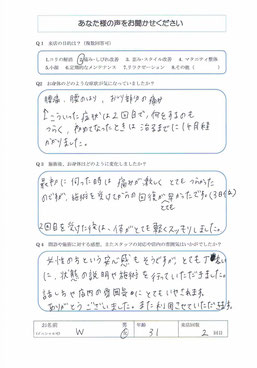 あなた様の声をお聞かせください
Q1 来店の目的は？（複数回答可）
1.コリの解消 2.痛み・しびれ改善 3.歪み・スタイル改善 4.マタニティ整体
5.小顔 6.定期的なメンテナンス 7.リラクゼーション 8.その他（ ）
Q2 お身体のどのような症状が気になっていましたか？
腰痛、腰のはり、おしり部分の痛み
↑こういった症状は2回目で、何をするのも
つらく、初めてなったときは治るまでに1ヶ月程
かかりました。
Q3 施術後、お身体はどのように変化しましたか？
最初に伺った時は痛みが激しくとてもつらかった
のですが、施術を受けてからの回復が早かったです。(3日位)
とても
2回目を受けた後は、体がとても軽くスッキリしました。
Q4 問診や施術に対する感想、またスタッフの対応や店内の雰囲気はいかがでしたか？
女性の方という安心感もそうですが、とても丁寧
に、状態の説明や施術を行っていただきました。
話しやすく店内の雰囲気にとてもいやされます。
ありがとうございました。また利用させていただきます。
お名前
(イニシャル可)
W
男
女
年齢
31
来店回数
2
回目